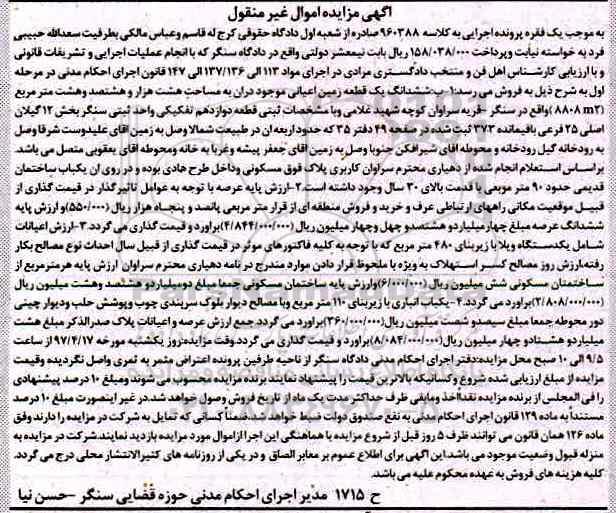 آگهی مزایده اموال غیر منقول
به موجب یک فقره پرونده اجرایی به کلاسه ۹۶۰۳۸۸ صادره از شعبه اول دادگاه حقوقی کرج له قاسم وعباس مالکی بطرفیت سعدالله حبیبی
فرد به خواسته نیابت وپرداخت ۱۵۸/۰۳۸/۰۰۰ ریال بابت نیمعشر دولتی واقع در دادگاه سنگر که با انجام عملیات اجرایی و تشریفات قانونی
و با ارزیابی کارشناس اهل فن و منتخب دادگستری مرادی در اجرای مواد ۱۱۳ الی ۱۳۷/۱۳۶ الی ۱۴۷ قانون اجرای احکام مدنی در مرحله
اول به شرح ذیل به فروش می رسد:۱-ششدانگ یک قطعه زمین اعیانی موجود دران به مساحت هشت هزار و هشتصد وهشت متر مربع
(۸۸۰۸ m۲) واقع در سنگر -قریه سراوان کوچه شهید غلامی وبا مشخصات ثبتی قطعه دوازدهم تفکیکی واحد ثبتی سنگر بخش ۱۲ گیلان
اصلی ۲۵ فرعی باقیمانده ۳۷۳ ثبت شده در صفحه ۴۹ دفتر ۳۵ که حدود اربعه ان در طبیعت شمالا وصل به زمین اقای علیدوست شرقا وصل
به رودخانه گیل رودخانه و محوطه اقای شیرافکن جنوبا وصل به زمین اقای جعفر پیشه وغربا به خانه ومحوطه اقای یعقوبی متصل می باشد.
براساس استعلام انجام شده از دهیاری محترم سراوان کاربری پلاک فوق مسکونی وداخل طرح هادی بوده و در روی ان یکباب ساختمان
قدیمی حدود ۹۰ متر موبعی با قدمت بالای ۳۰ سال وجود داشته است.۲-ارزش پایه عرصه با توجه به عوامل تاثیرگذار در قیمت گذاری از
قبیل موقعیت مکانی راههای ارتباطی عرف و خرید و فروش منطقه ای از قرار متر مربعی پانصد و پنجاه هزار ریال (۵۵۰/۰۰۰) و ارزش پایه
ششدانگ عرصه مبلغ چهار میلیارد و هشتصدو چهل وچهار میلیون ریال (۴/۸۴۴/۰۰۰/۰۰۰) براورد و قیمت گذاری می گردد.۳-ارزش اعیانات
شامل یکدستگاه ویلا با زیربنای ۴۸۰ متر مربع که با توجه به کلیه فاکتورهای موثر در قیمت گذاری از قبیل سال احداث نوع مصالح بکار
رفته،ارزش روز مصالح کسر استهلاک به ویژه با ملحوظ قرار دادن موارد مندرج در نامه دهیاری محترم سراوان ارزش پایه هرمترمربع از
ساختمتان مسکونی شش میلیون ریال (۶/۰۰۰/۰۰۰) وارزش پایه ساختمان مسکونی جمعا مبلغ دو میلیارد و هشتصد وهشت میلیون ریال
(۲/۸۰۸/۰۰۰/۰۰۰) براورد می گردد.۴-یکباب انباری با زیربنای ۱۱۰ متر مربع وبا مصالح دیوار بلوک سربندی چوب وپوشش حلب ودیوار چینی
دور محوطه جمعا مبلغ سیصدو شصت میلیون ریال (۳۶۰/۰۰۰/۰۰۰) براورد می گردد جمع ارزش عرصه و اعیانات پلاک صدرالذکر مبلغ هشت
میلیارد و هشتادو چهار میلیون ریال (۸/۰۸۴/۰۰۰/۰۰۰) براورد و قیمت گذاری می گردد.وقت مزایده:روز یکشنبه مورخه ۹۷/۴/۱۷ از ساعت
۹/۵ الی ۱۰ صبح محل مزایده:دفتر اجرای احکام مدنی دادگاه سنگر از ناحیه طرفین پرونده اعتراض مثمر به ثمری واصل نگردیده وقیمت
مزایده از مبلغ ارزیابی شده شروع وکسانیکه بالاترین قیمت را پیشنهاد نمایند برنده مزایده محسوب می شوند ومبلغ ۱۰ درصد پیشنهادی
را فی المجلس از برنده مزایده نقدا اخذ ومابقی ظرف حداکثر مدت یک ماه از تاریخ فروش وصول خواهد شد.در غیر اینصورت مبلغ ۱۰ درصد
مستندا به ماده ۱۲۹ قانون اجرای احکام مدنی به نفع صندوق دولت ضبط خواهد شد.ضمنا کسانی که تمایل به شرکت در مزایده را دارند وفق
ماده ۱۲۶ همان قانون می توانند ظرف ۵ روز قبل از شروع مزایده با هماهنگی این اجرا از اموال مورد مزایده بازدید نمایند.شرکت در مزایده به
منزله قبول وضعیت موجود می باشد.این آگهی برای اطلاع عموم بر معابر الصاق و در یکی از روزنامه های کثیرالانتشار محلی درج می گردد.
کلیه هزینه های فروش به عهده محکوم علیه می باشد.
ح ۱۷۱۵ مدیر اجرای احکام مدنی حوزه قضایی سنگر -حسن نیا